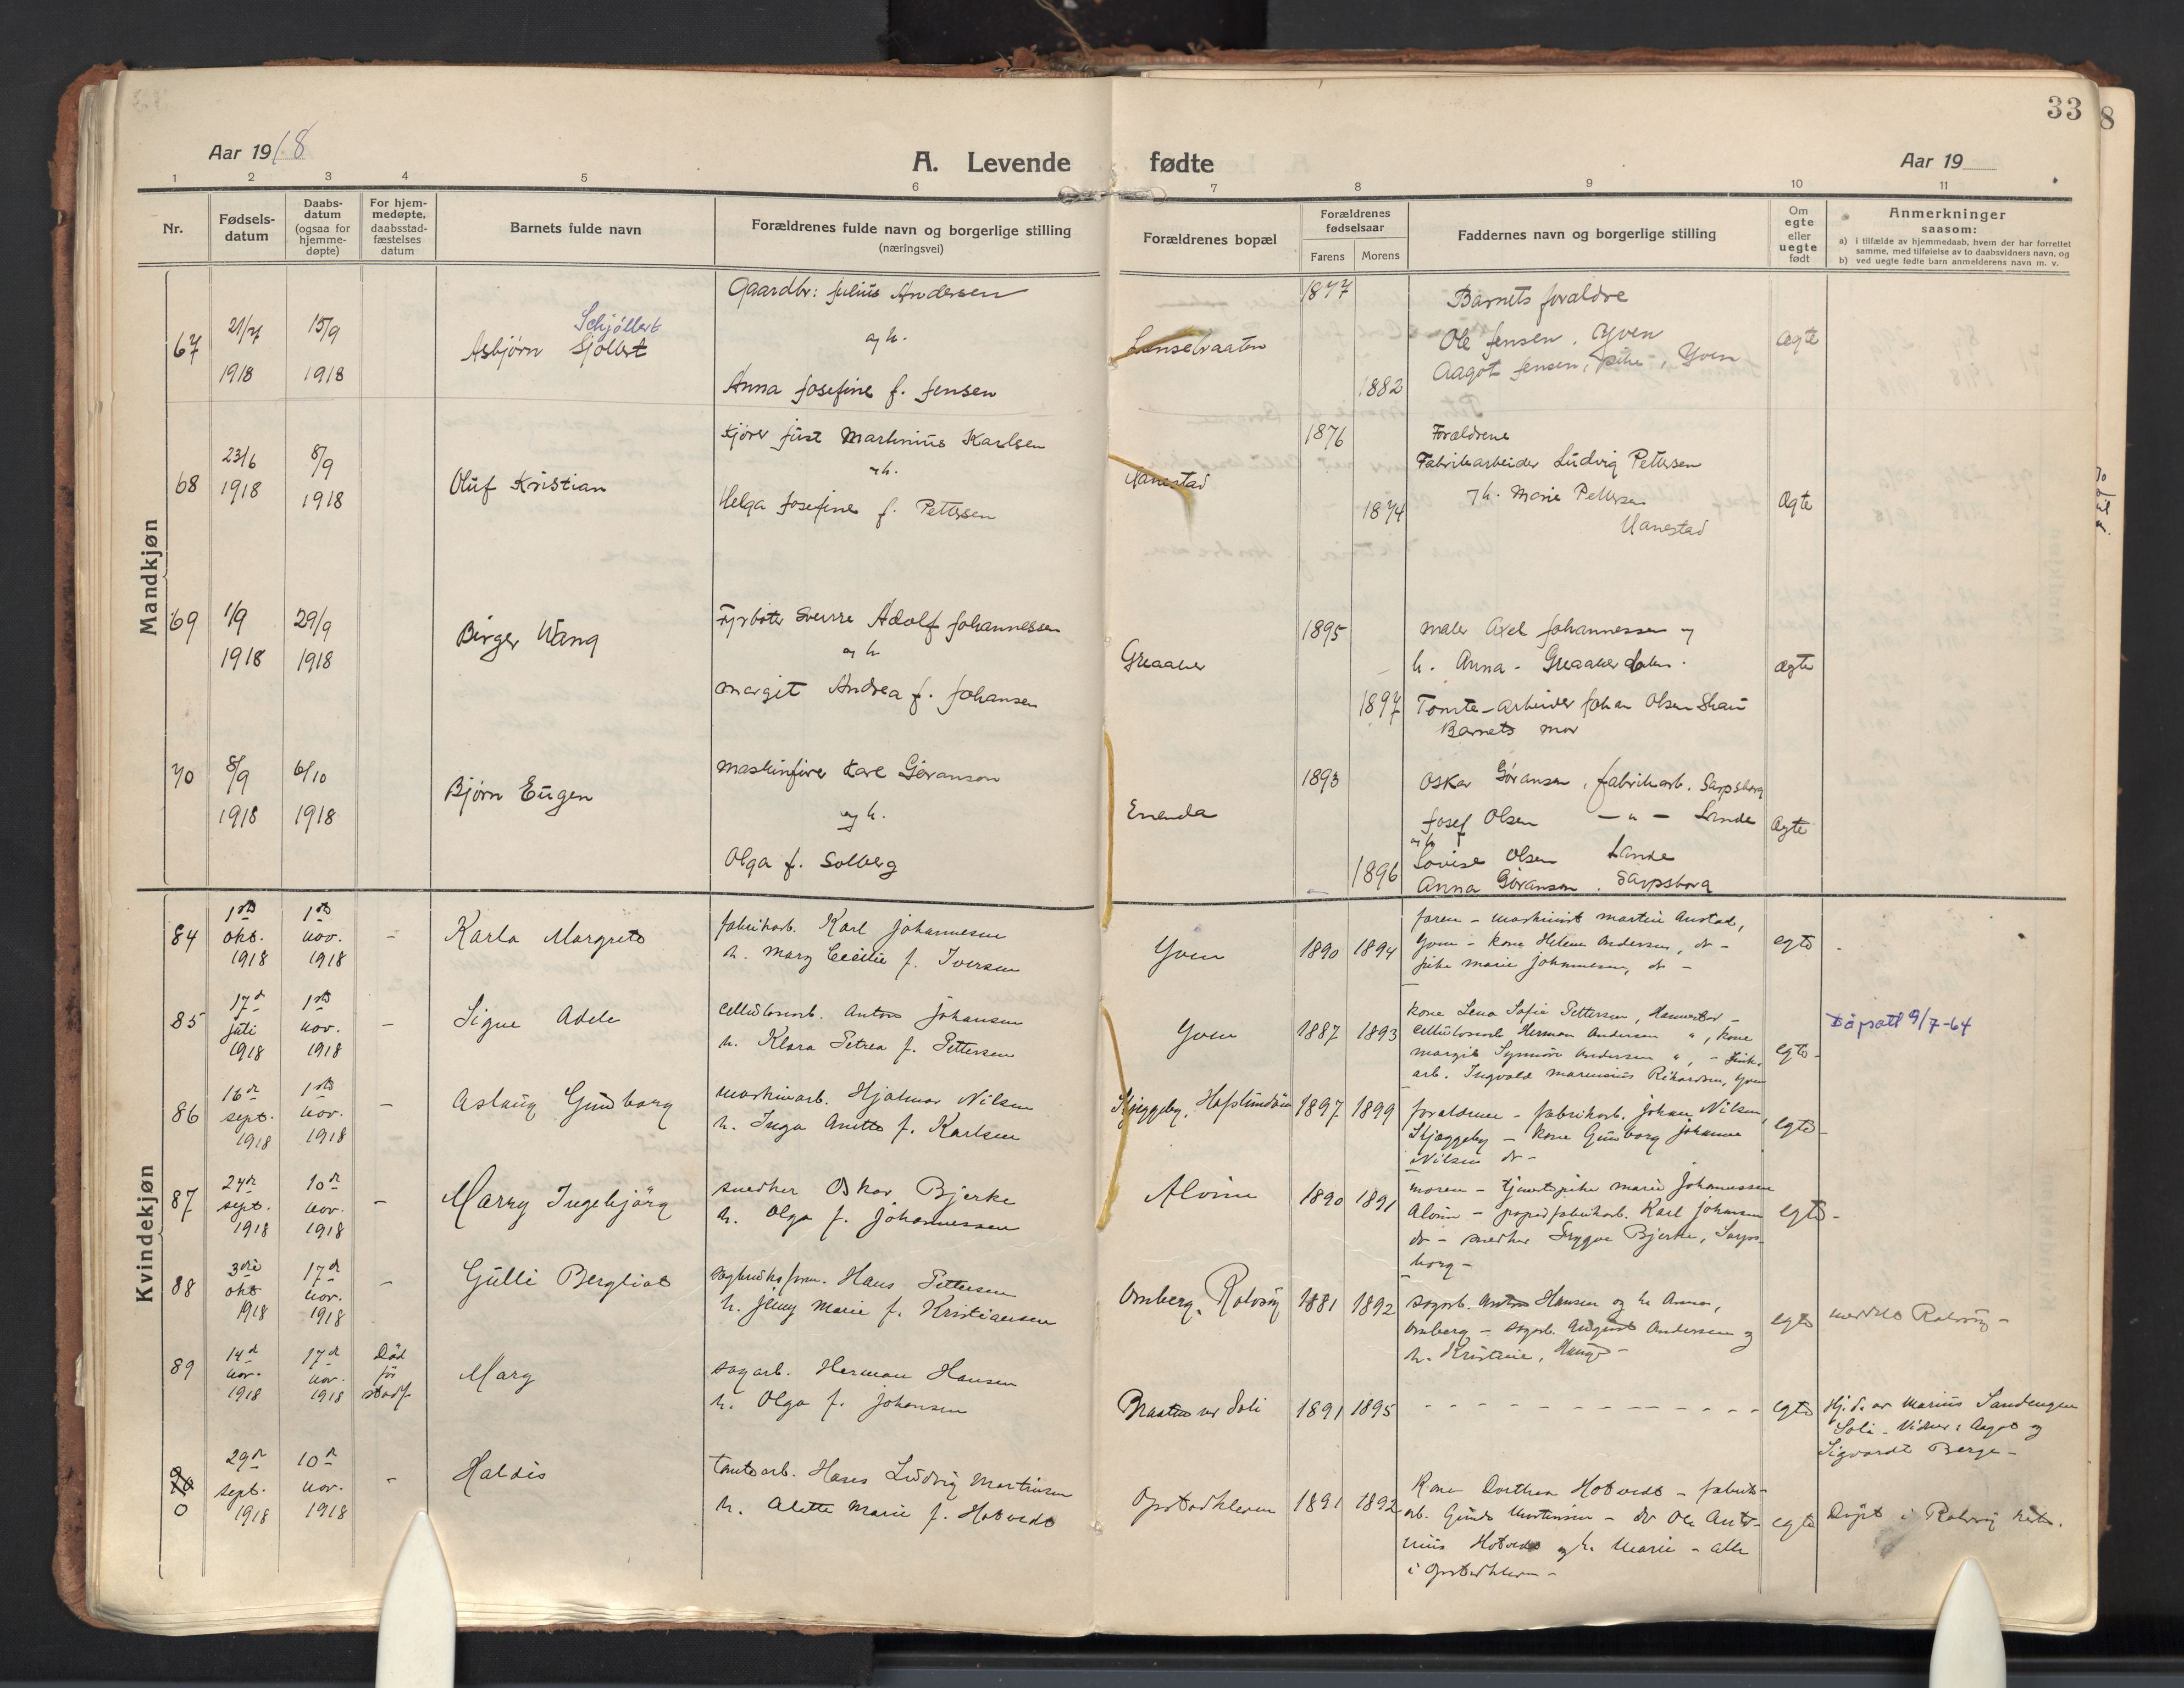 33
8
Aar 1918
A. Levende fødte
Aar 19
1 2 3 4 5 6 7 8 9 10 11
Nr.
Fødsels-
datum
Daabs-
datum
(ogsaa for
hjemme-
døpte)
For hjem-
medøpte,
daabsstad-
fæstelses
datum
Barnets fulde navn
Forældrenes fulde navn og borgerlige stilling
(næringsvei)
Forældrenes bopæl
Forældrenes
fødselsaar
Farens Morens
Faddernes navn og borgerlige stilling
Om
egte
eller
uegte
født
Anmerkninger
saasom:
a) i tilfælde av hjemmedaab, hvem der har forrettet
samme, med tilføielse av to daabsvidners navn, og
b) ved uegte fødte barn anmelderens navn m. v.
Mandkjøn
67
21/7
1918
15/9
1918
Schjöllert
Asbjørn Sjöllert
Gaardbr: Julius Andersen
og h.
Anna Josefine f. Jensen
1877
1882
Barnets foraldre
Ole Jensen, Yven
Aagot Jensen, pike, Yven
Ægte
68
23/6
1918
8/9
1918
Oluf Kristian
Kjører Just Martinius Karlsen
og h.
Helga Josefine f. Pettersen
Nanestad
1876
1874
Forældrene
Fabrikarbeider Ludvig Pettersen
og h. Marie Pettersen
Nanestad
Ægte
69
1/9
1918
29/9
1918
Birger Wang
Fyrbøter Sverre Adolf Johannessen
og h
Margit Andrea f. Johansen
Greaaker
1895
1897
Maler Axel Johannessen og
h. Anna - Greaaker
Tomte-arbeider Johan Olsen
Barnets mor
ægte
70
8/9
1918
6/10
1918
Bjørn Eugen
Maskinfører Karl Gøranson
og h.
Olga f. Solberg
Enenda
1893
1896
Oskar Gøransen, fabrikarb. Sarpsborg
Josef Olsen — " — Lande
og h
Lovise Olsen Lande
Anna Gøransen. Sarpsborg
Ægte
Kvindekjøn
84
1ste
okt.
1918
1ste
nov.
1918
-
Karla Margrete
fabrikarb. Karl Johannesen
h. Mary Cecilie f. Iversen
Yven
1890 1894
faren - maskinist Martin Anstad,
Yven - kone Helene Andersen, do -
pike Marie Johannesen, do -
egte -
85
17de
juli
1918
1ste
nov.
1918
-
Signe Adele
Cellulosearb. Anton Johansen
h. Klara Petrea f. Pettersen
Yven
1887 1893
kone Lena Sofie Pettersen,
cellulosearb. Herman Andersen ", kone
Margit Synnöve Andersen ", -
arb. Ingvald Marensius Rikardsen, Yven
egte -
Dåpsatt 9/7-64
86
16de
sept.
1918
1ste
nov.
1918
-
Aslaug Gunborg
maskinarb. Hjalmar Nilsen
h. Inga Anette f. Karlsen
Skjeggeby, Hafslundsøen
1897 1899
foraldrene - fabrikarb. Johan Nilsen,
Skjæggeby - kone Gunborg Johanne
Nilsen do -
egte -
87
24de
sept.
1918
10de
nov.
1918
-
Marry Ingebjörg
snedker Oskar Bjerke
h. Olga f. Johannessen
Alvim
1890 1891
moren - tjenestepike Marie Johannessen
Alvim - papirfabrikarb. Karl Johansen
do - snedker Trygve Bjerke, Sarps-
borg -
egte -
88
3die
okt
1918
17de
nov.
1918
-
Gulli Bergliot
sagbruksform. Hans Pettersen
h. Jenny Marie f. Kristiansen
Omberg, Rolvsöy
1881 1892
sagarb. Anton Hansen og h. Anna,
Omberg - sagarb. August Andersen og
h. Kristine, Hauge -
egte
meddelt Rolvsöy -
89
14de
nov.
1918
17de
nov.
1918
Död
för
stadf.
Mary
sagarb. Herman Hansen
h. Olga f. Johansen
Braaten ved Soli
1891 1895
- - - - - - - - - - - - - -
egte
Hj.d. av Marius Sandengen
Soli - Vidner: Aagot og
Sigvardt Berge -
9
0
29de
sept.
1918
10de
nov.
1918
-
Haldis
tomtearb. Hans Ludvig Martinsen
h. Alette Marie f. Hotvedt
Opstadkleven
1891 1892
Kone Dorthea Hotvedt - fabrik-
arb. Martinsen - do Ole Anto-
nius Hotvedt og h. Marie - alle
i Opstadkleven -
egte
Döpt i Rolvsöy kirke.